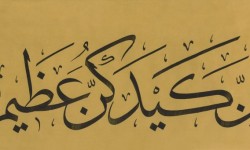 نَّ كَيْدَكُنَّ عَظِيمٌ